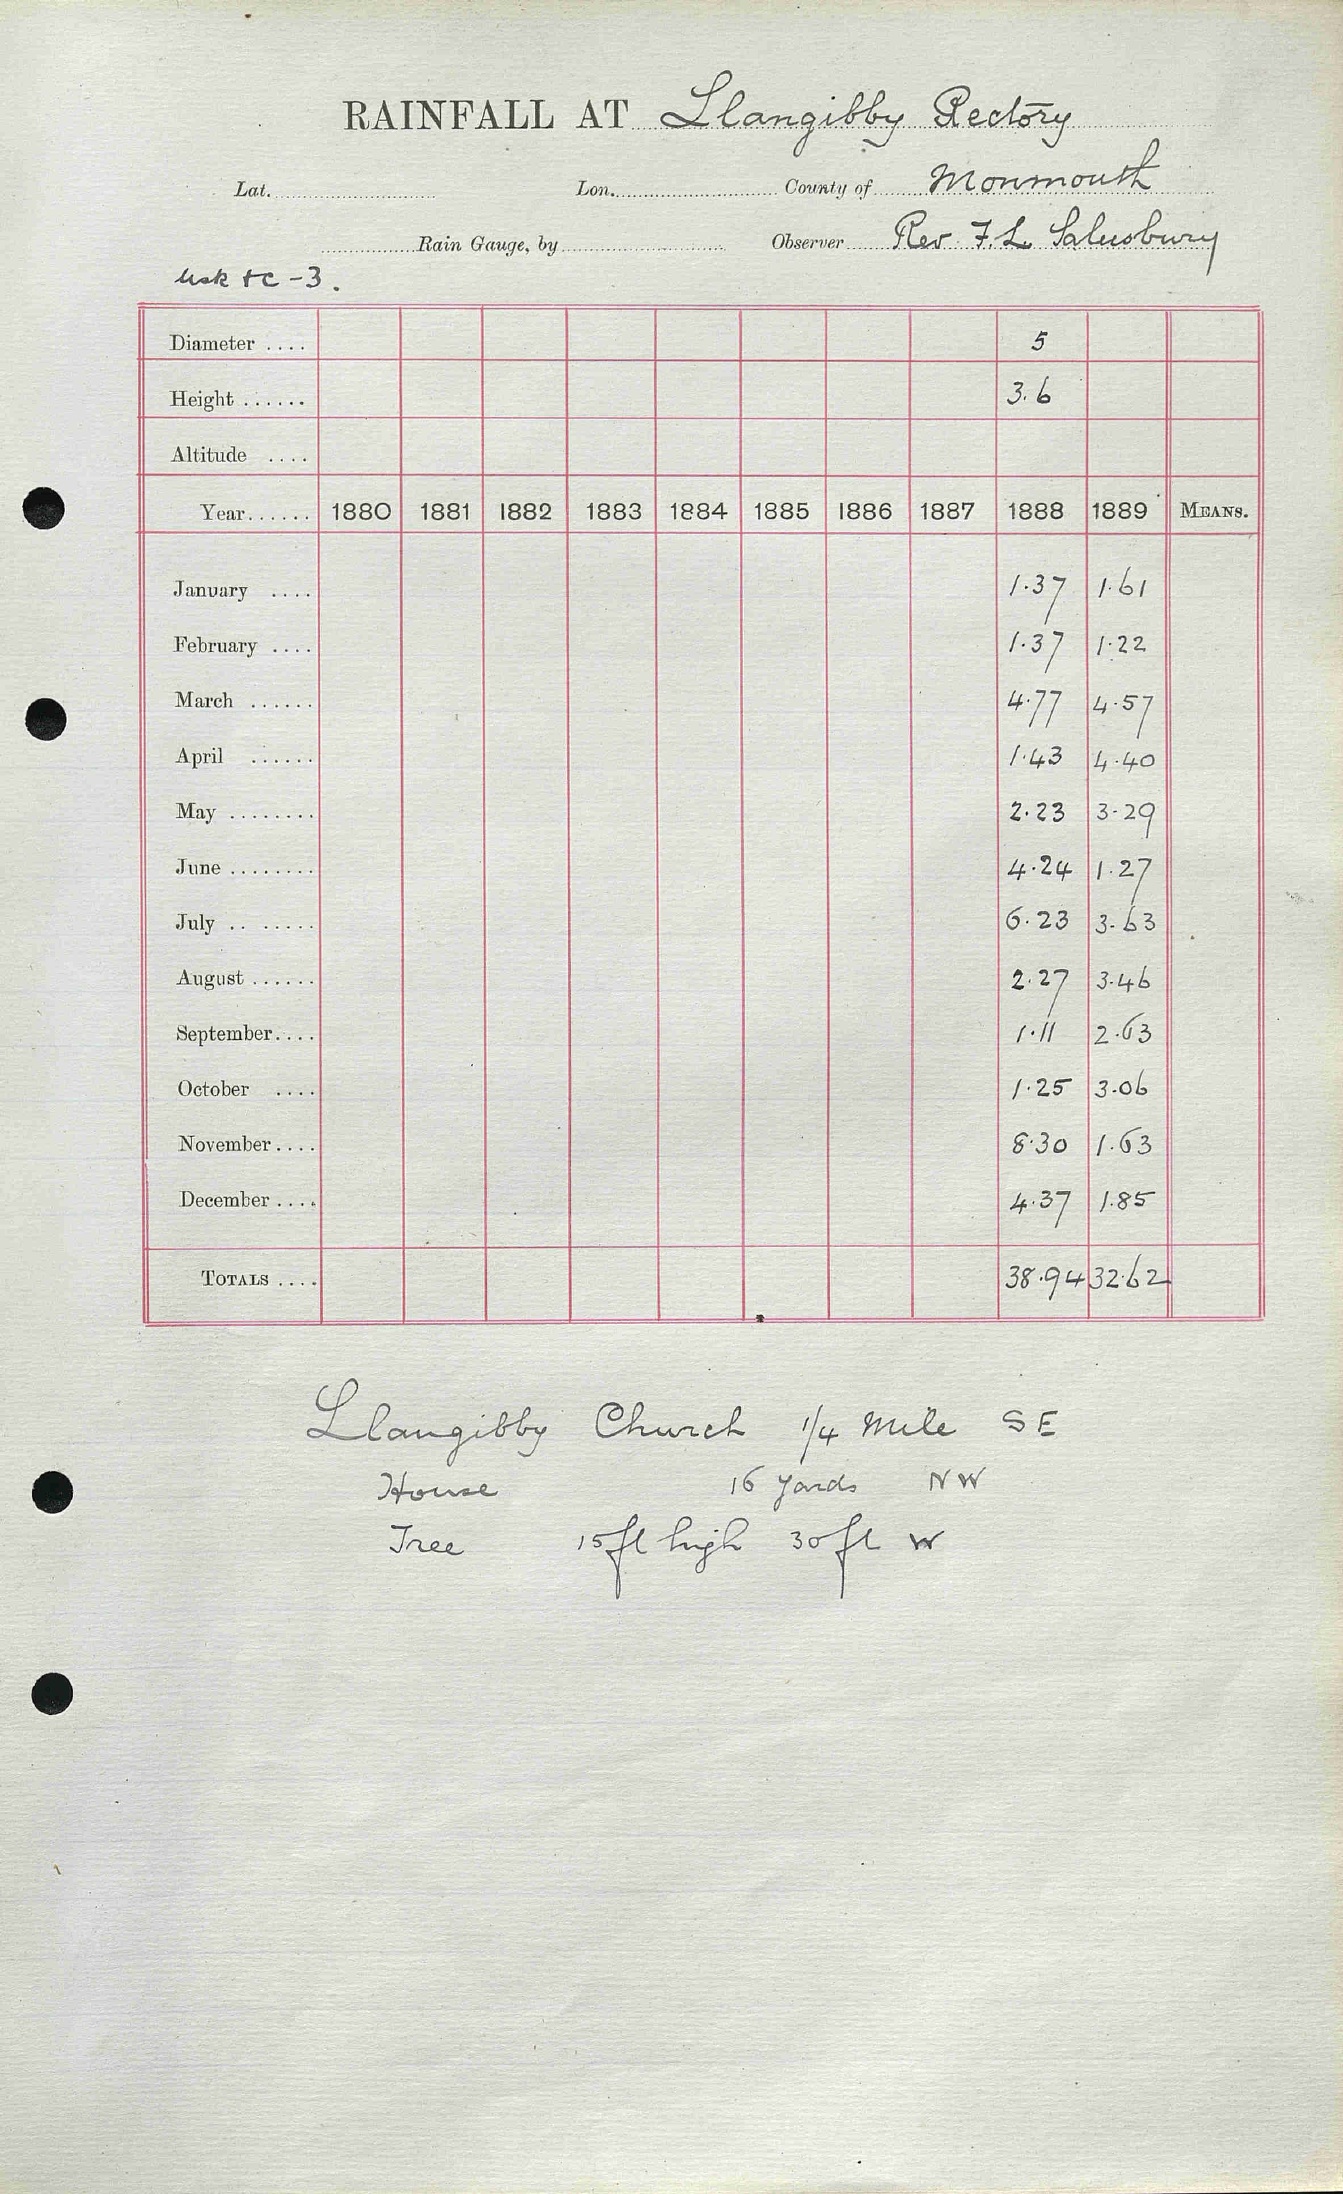 RAINFALL AT Llangibby Rectory
Lat. Lon. County of Monmouth
Rain Gauge, by Observer Rev F. L. Salusbury
Usk &c -3.
Diameter .... 5
Height ...... 3.6
Altitude ....
Year...... 1880 1881 1882 1883 1884 1885 1886 1887 1888 1889 MEANS.
January .... 1.37 1.61
February .... 1.37 1.22
March ...... 4.77 4.57
April ...... 1.43 4.40
May ........ 2.23 3.29
June ........ 4.24 1.27
July .. ...... 6.23 3.63
August ...... 2.27 3.46
September.... 1.11 2.63
October .... 1.25 3.06
November.... 8.30 1.63
December .... 4.37 1.85
TOTALS .... 38.94 32.62
Llangibby Church 1/4 Mile SE
House 16 yards NW
Tree 15ft high 30ft W